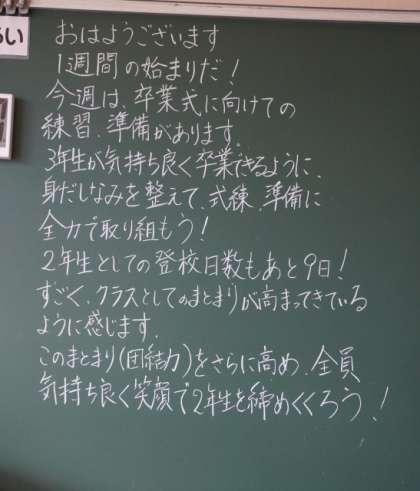 おはようございます
1週間の始まりだ!
今週は、卒業式に向けての
練習、準備があります。
3年生が気持ち良く卒業できるように、
身だしなみを整えて、式練、準備に
全力で取り組もう!
2年生としての登校日数もあと9日!
すごく、クラスとしてのまとまりが高まってきている
ように感じます。
このまとまり(団結力)をさらに高め、全員
気持ち良く笑顔で2年生を締めくくろう!